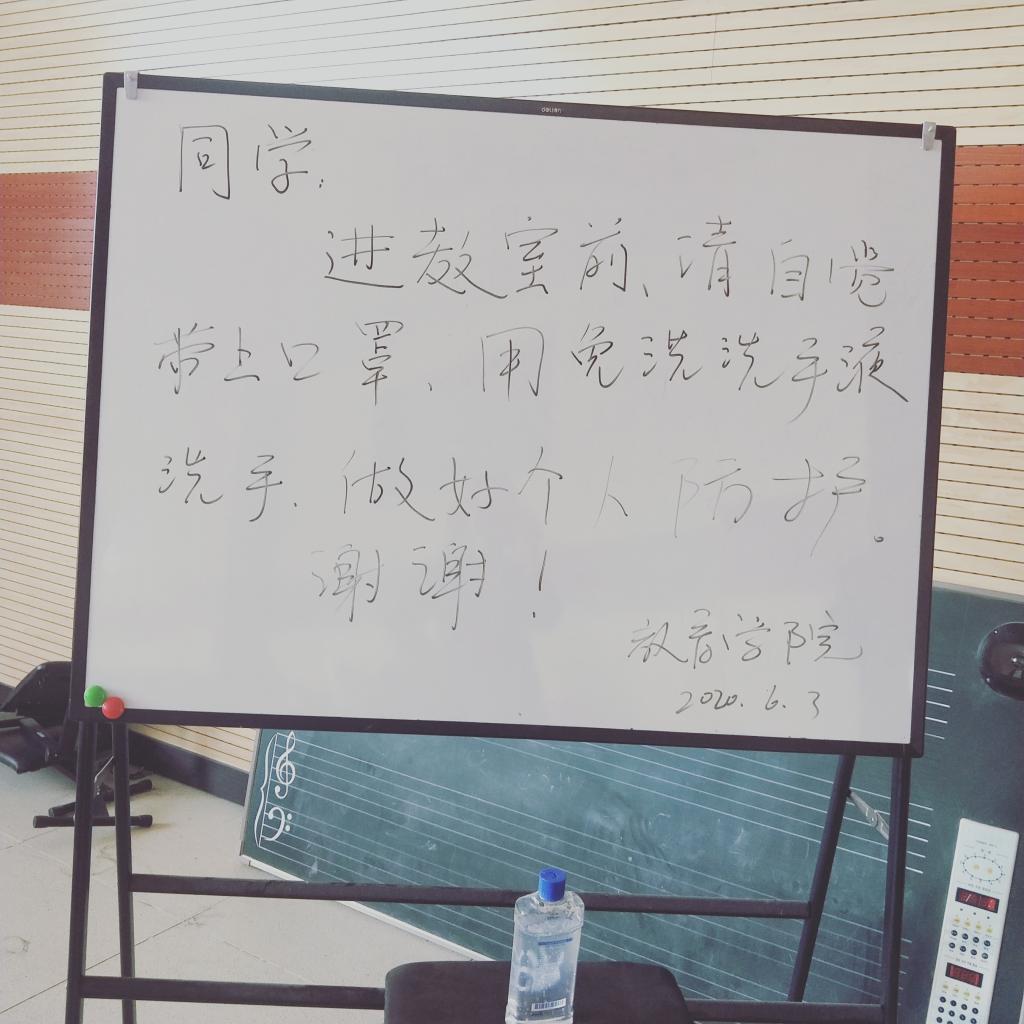 同学:
进教室前、请自觉
带上口罩、用免洗洗手液
洗手、做好个人防护。
谢谢!
教育学院
2020.6.3